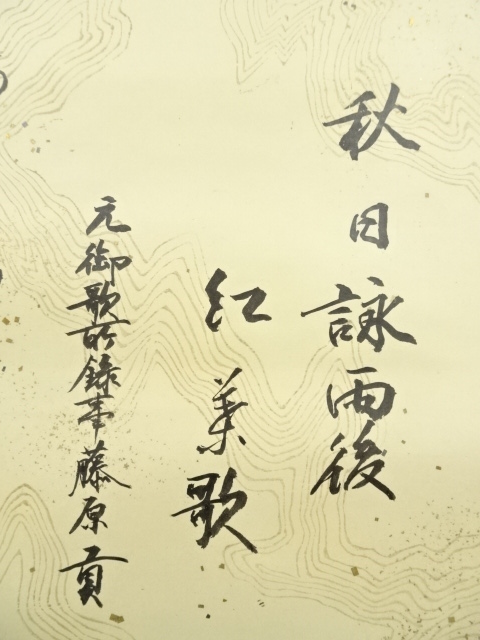 秋日詠雨後
紅葉歌
元御歌所録事藤原貢